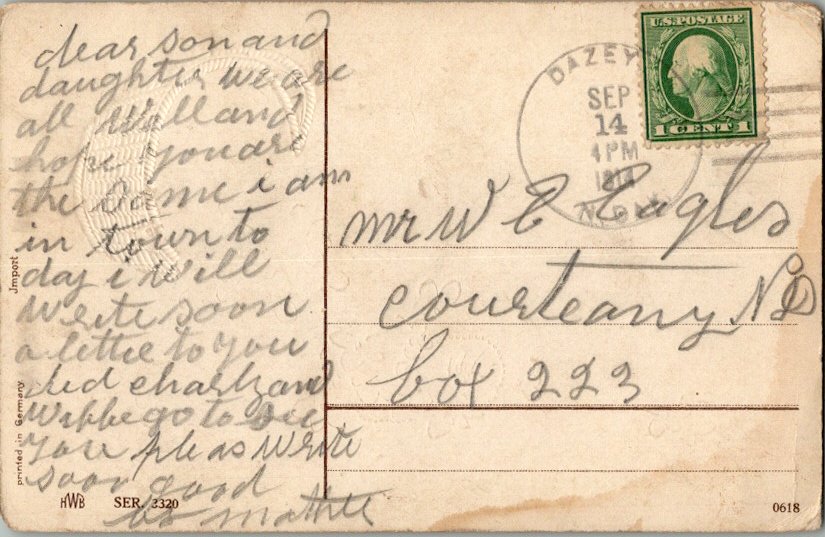 dear son and
daughter we are
all well and
hope you are
the same i am
in town to
day i will
write soon
a letter to you
did charly and
wiffe go to see
you pleas write
soon good
by mother
Jmport
printed in Germany
HWB SER. 2320
DAZEY
SEP
14
4 PM
1914
N. DAK.
U.S. POSTAGE
1 CENT 1
mr W E Eagles
courteany ND
box 223
0618